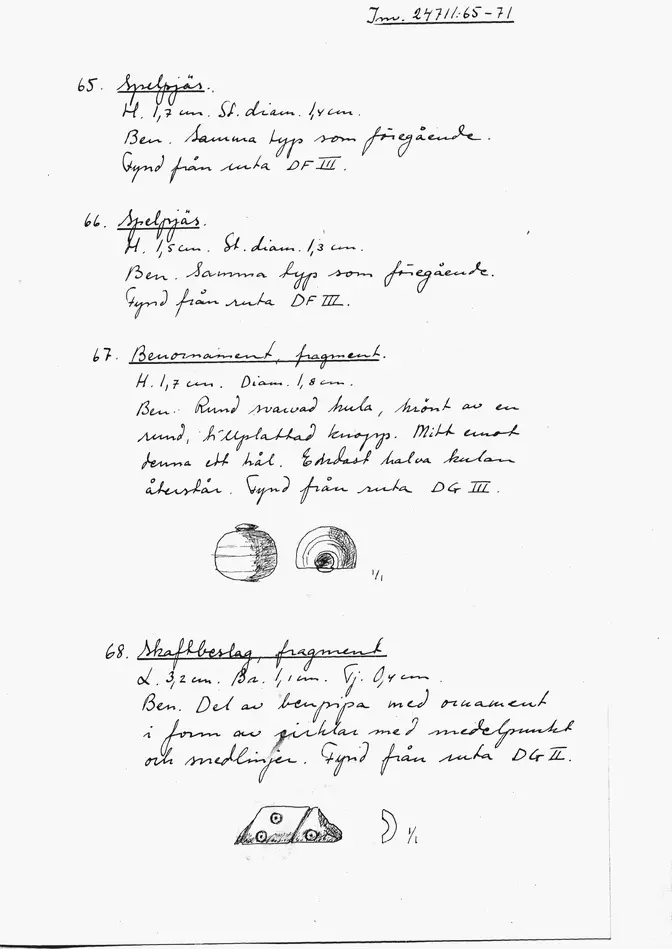 Inv. 24711:65-71
65. Spelpjäs.
H. 1,7 cm. St. diam. 1,4 cm.
Ben. Samma typ som föregående.
Fynd från ruta DF III.
66. Spelpjäs.
H. 1,5 cm. St. diam. 1,3 cm.
Ben. Samma typ som föregående.
Fynd från ruta DF III.
67. Benornament, fragment.
H. 1,7 cm. Diam. 1,8 cm.
Ben. Rund svarvad kula, krönt av en
rund, tillplattad knopp. Mitt emot
denna ett hål. Endast halva kulan
återstår. Fynd från ruta DG III.
1/1
68. Skaftbeslag, fragment
L. 3,2 cm. Br. 1,1 cm. Tj. 0,4 cm.
Ben. Del av benpipa med ornament
i form av cirklar med medelpunkt
och snedlinjer. Fynd från ruta DG II.
1/1